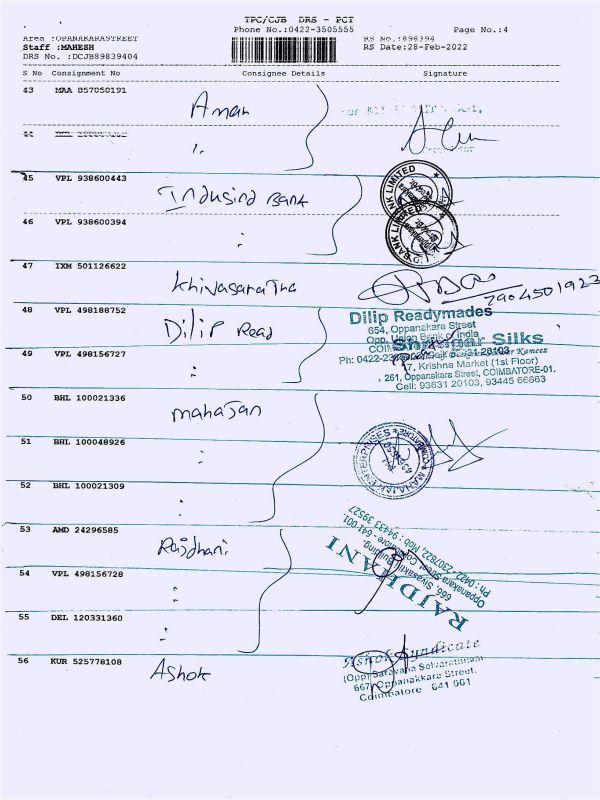 TPC/CJB DRS - PCT
Phone No.:0422-3505555 Page No.:4
Area :OPANAKARASTREET RS No.:898394
Staff :MAHESH RS Date:28-Feb-2022
DRS No. :DCJB89839404
S No Consignment No Consignee Details Signature
43 MAA 857050191 Aman
44
45 VPL 938600443 Indusind Bank
BANK LIMITED
46 VPL 938600394
BANK LIMITED
47 IXM 501126622 Khivasaratha
7904501923
48 VPL 498188752 Dilip Read
Dilip Readymades
654, Oppanakara Street
Opp. Union Bank of India
Silks
49 VPL 498156727
Ph: 0422-
17, Krishna Market (1st Floor)
261, Oppanakara Street, COIMBATORE-01.
Cell: 93631 20103, 93445 66663
50 BHL 100021336 Mahajan
51 BHL 100048926
MAHAJAN ENTERPRISES
52 BHL 100021309
53 AMD 24296585 Rajdhani
RAJDHANI
666, Sivasakthi Building,
Oppanakara Street, Coimbatore - 641 001
Ph : 0422- 2307822, Mob : 94433 39527
54 VPL 498156728
55 DEL 120331360
56 KUR 525778108 Ashok
Ashok Syndicate
(Opp) Saravana Selvarathinam
667, Oppanakkara Street,
Coimbatore 641 001